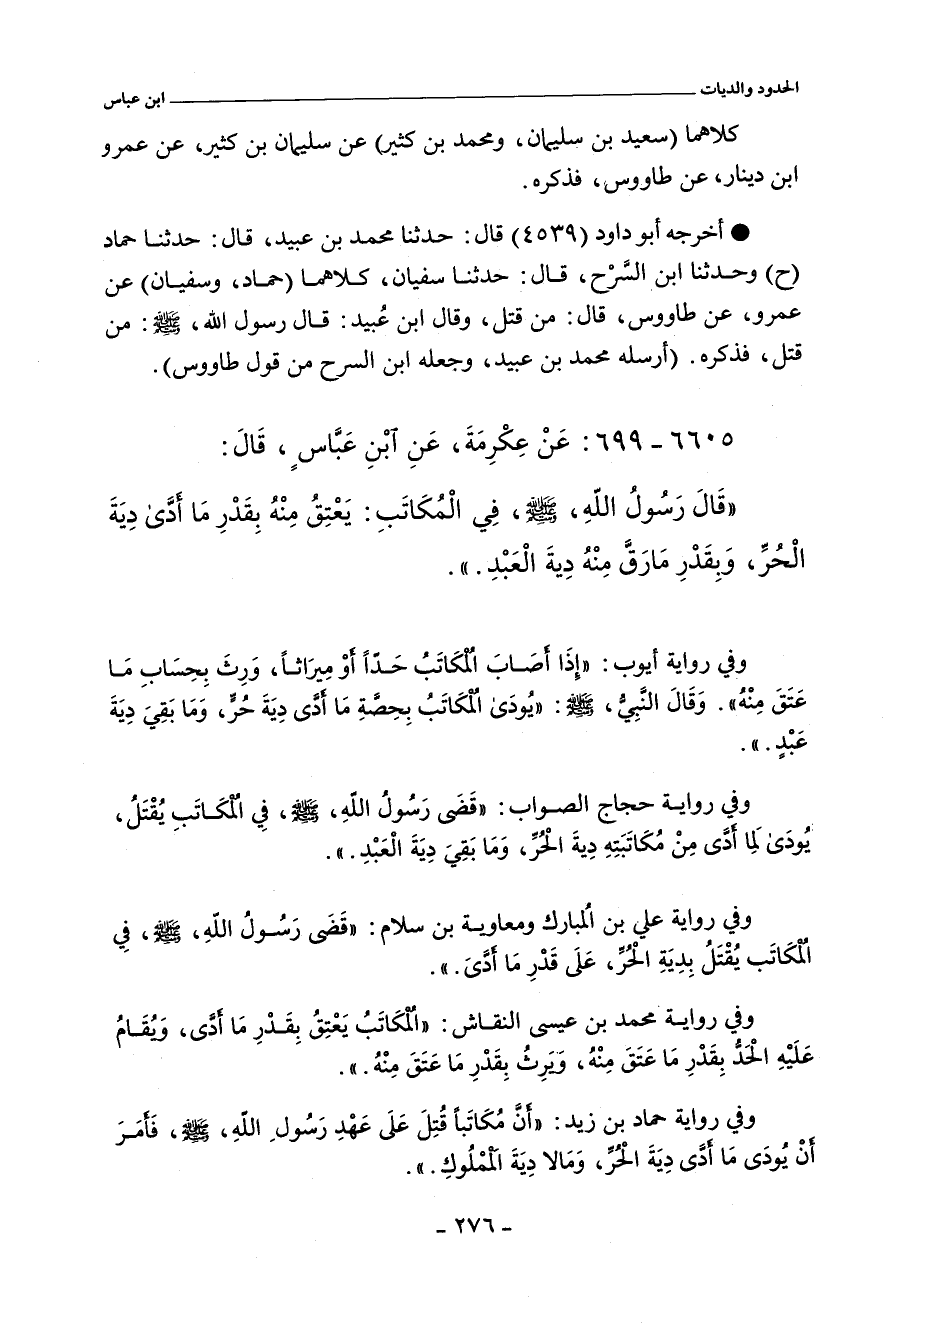 الحدود والديات ــــــــــ ابن عباس
كلاهما (سعيد بن سليمان، ومحمد بن كثير) عن سليمان بن كثير، عن عمرو
ابن دينار، عن طاووس، فذكره.
● أخرجه أبو داود (٤٥٣٩) قال: حدثنا محمد بن عبيد، قال: حدثنا حماد
(ح) وحدثنا ابن السَّرْح، قال: حدثنا سفيان، كلاهما (حماد، وسفيان) عن
عمرو، عن طاووس، قال: من قتل، وقال ابن عُبيد: قال رسول الله، ﷺ: من
قتل، فذكره. (أرسله محمد بن عبيد، وجعله ابن السرح من قول طاووس).
٦٦٠٥ - ٦٩٩: عَنْ عِكْرِمَةَ، عَنِ ٱبْنِ عَبَّاسٍ، قَالَ:
«قَالَ رَسُولُ اللّهِ، ﷺ، فِي الْمُكَاتَبِ: يَعْتِقُ مِنْهُ بِقَدْرِ مَا أَدَّىٰ دِيَةَ
الْحُرِّ، وَبِقَدْرِ مَارَقَّ مِنْهُ دِيةَ الْعَبْدِ.».
وفي رواية أيوب: «إِذَا أَصَابَ الْمُكَاتَبُ حَدّاً أَوْ مِيرَاثاً، وَرِثَ بِحِسَابِ مَا
عَتَقَ مِنْهُ». وَقَالَ النَّبِيُّ، ﷺ: «يُودَىٰ الْمُكَاتَبُ بِحِصَّةِ مَا أَدَّى دِيَةَ حُرٍّ، وَمَا بَقِيَ دِيَةَ
عَبْدٍ.».
وفي رواية حجاج الصواب: «قَضَى رَسُولُ اللّهِ، ﷺ، فِي الْمُكَاتَبِ يُقْتَلُ،
يُودَىٰ لِمَا أَدَّى مِنْ مُكَاتَبَتِهِ دِيةَ الْحُرِّ، وَمَا بَقِيَ دِيَةَ الْعَبْدِ.».
وفي رواية علي بن المبارك ومعاوية بن سلام: «قَضَى رَسُولُ اللّهِ، ﷺ، فِي
الْمُكَاتَب يُقْتَلُ بِدِيَةِ الْحُرِّ، عَلَى قَدْرِ مَا أَدَّىَ.».
وفي رواية محمد بن عيسى النقاش: «الْمُكَاتَبُ يَعْتِقُ بِقَدْرِ مَا أَدَّى، وَيُقَامُ
عَلَيْهِ الْحَدُّ بِقَدْرِ مَا عَتَقَ مِنْهُ، وَيَرِثُ بِقَدْرِ مَا عَتَقَ مِنْهُ.».
وفي رواية حماد بن زيد: «أَنَّ مُكَاتَباً قُتِلَ عَلَى عَهْدِ رَسُولِ اللّهِ، ﷺ، فَأَمَرَ
أَنْ يُودَى مَا أَدَّى دِيَةَ الْحُرِّ، وَمَالا دِيَةَ الْمْلُوكِ.».
- ٢٧٦ -